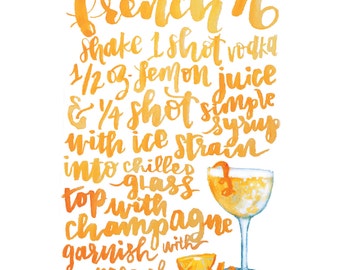 french 76
shake 1 shot vodka
1/2 oz. lemon juice
& 1/4 shot simple
syrup
with ice strain
into chilled
glass
top with
champagne
garnish with